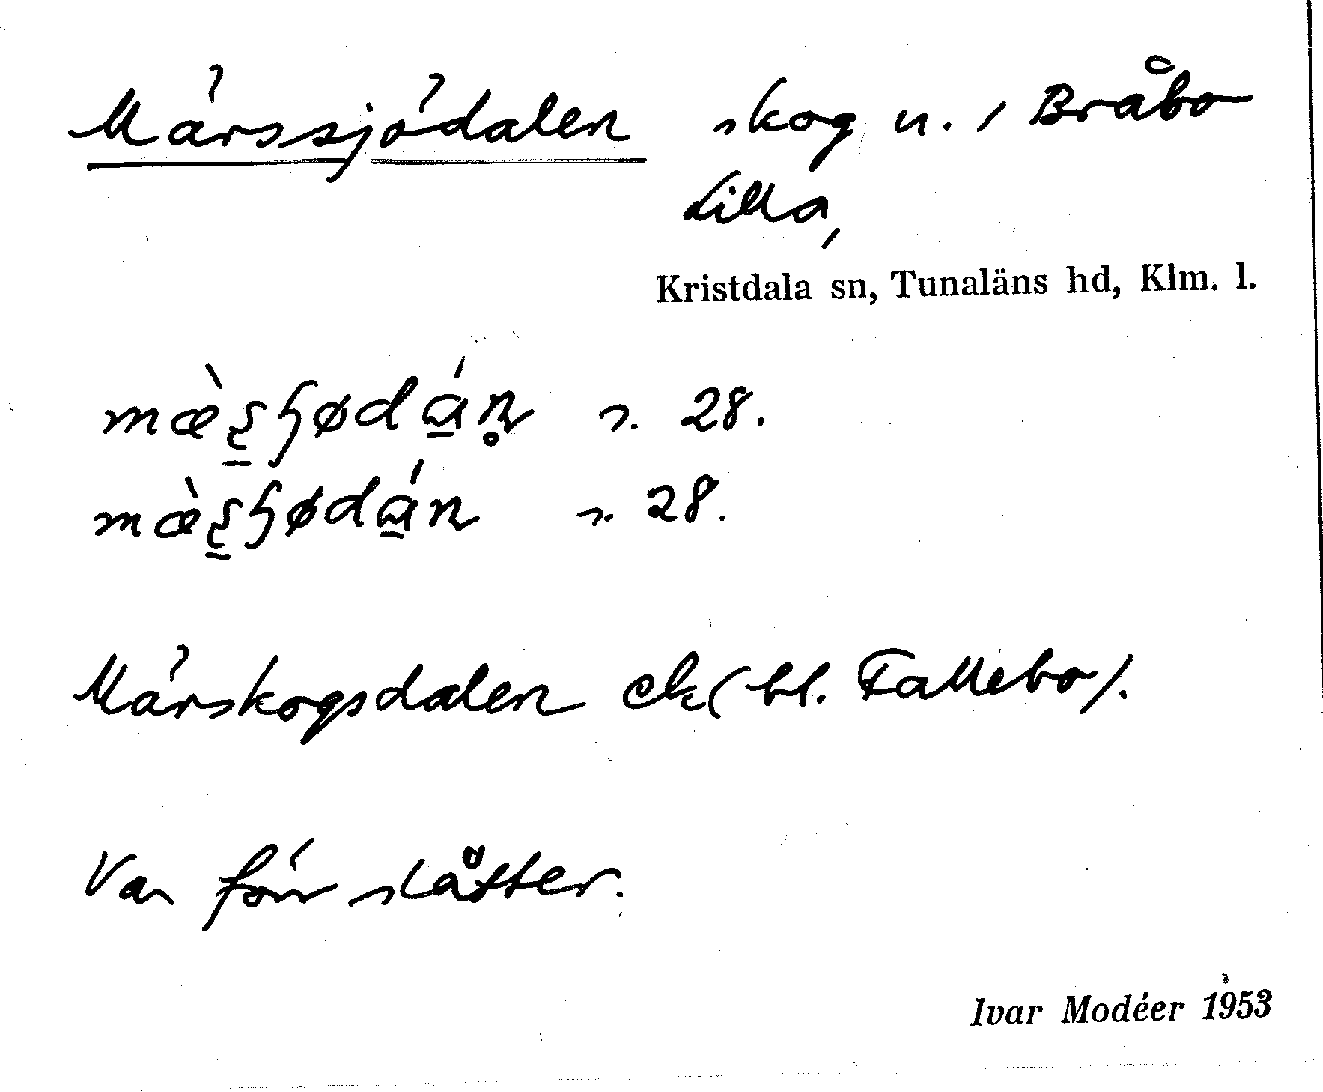 Märssjödalen skog u. / Bråbo
Lilla,
Kristdala sn, Tunaläns hd, Klm. l.
s. 28.
s. 28.
Märskogsdalen ek (bl. Fallebo).
Var förr slåtter.
Ivar Modéer 1953